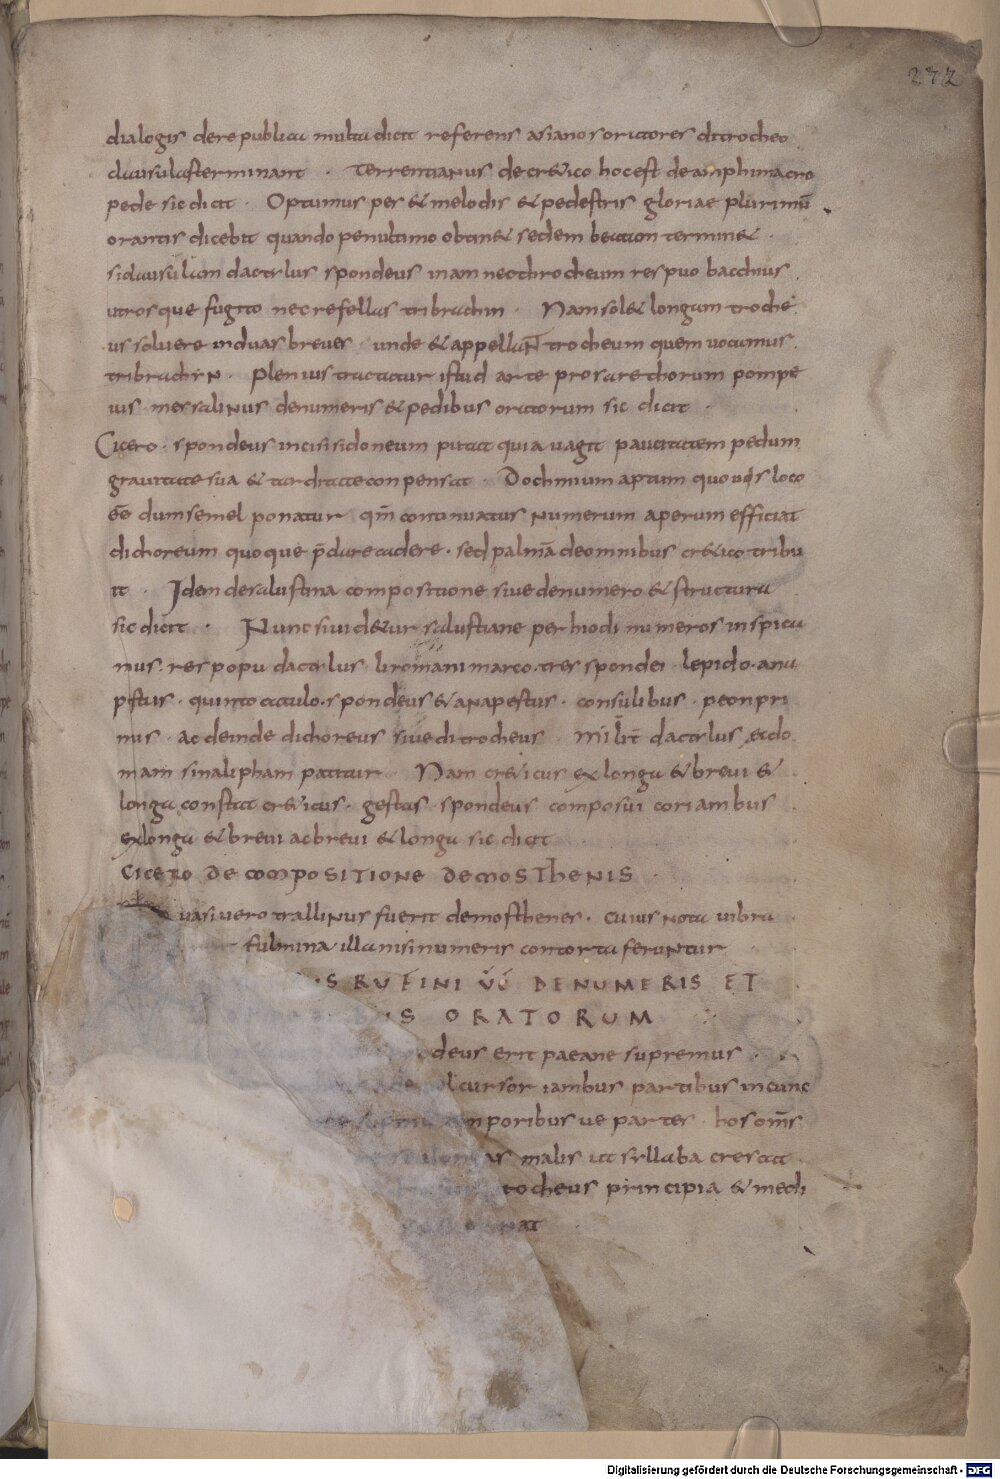 272
dialogis dere publica multa dicit referens asianos oratores ditrocheo
clausulas terminant · Terrentianus decretico hoc est de amphimacro
pede sic dicit · Optumus per & melodis & pedestris gloriae plurimū
orantis dicebit quando penultimo obtin& sedem beation termin&
si clausulam dactilus spondeus inam nec throcheum respuo bacchius
utrosque fugito nec refellas tribrachin · Nam sol& longam troche
us solvere in duas breves · unde & appellant trocheum quem vocamus
tribrachyn · plenius tractatur istud arte prosarethorum pompe
ius messalinus denumeris & pedibus oratorum sic dicit ·
Cicero · spondeus incisis idoneum putat quia vagit paucitatem pedum
gravitate sua & tarditate conpensat · Dochmium aptum quovis loco
eē dum semel ponatur qm̄ continuatus numerum aperum efficiat
dichoreum quoque p̄clare cadere · sed palmā de omnibus cr&ico tribu
it · Idem de salustina compositione sive denumero & structura
sic dicit · Nunc si vid&ur salustiane perhiodi numeros inspicia
mus · res popu dactilus · li romani marco · tres spondei · lepido · ana
pestus · quinto catulo · spondeus & anapestus · consulibus · peon pri
mus · ac deinde dichoreus sive ditrocheus · milit̄ dactilus, & do
mam sinalipham patitur · Nam cr&icus ex longa & brevi &
longa constat cr&icus · gestas · spondeus composui coriambus
ex longa & brevi ac brevi & longa sic dicit
CICERO DE COMPOSITIONE DEMOSTHENIS ·
uasi vero trallinus fuerit demosthenes · cuius nota vibra
fulmina illa nisi numeris contorta feruntur
S RUFINI VC̄ DENUMERIS ET
IS ORATORUM
deus erit paeane supremus
cursor iambus partibus in cunc
mporibus ve partes hos om̄s
as malis ut syllaba crescat
trocheus principia & medi
nat
Digitalisierung gefördert durch die Deutsche Forschungsgemeinschaft · DFG